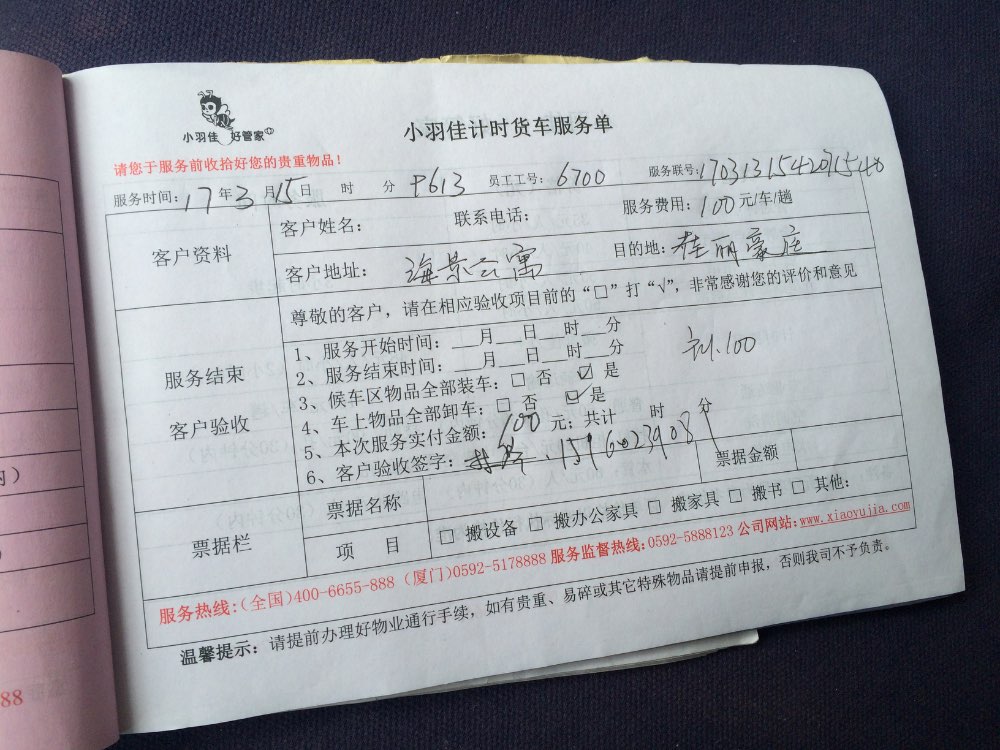 小羽佳 好管家
小羽佳计时货车服务单
请您于服务前收拾好您的贵重物品！
服务时间：17年3月15日 时 分 P613 员工工号：6700 服务联号：1703131542091540
客户资料
客户姓名： 联系电话： 服务费用：100元/车/趟
客户地址：海景公寓 目的地：桂丽豪庄
尊敬的客户，请在相应验收项目前的“□”打“√”，非常感谢您的评价和意见
服务结束
客户验收
1、服务开始时间：___月___日___时___分
2、服务结束时间：___月___日___时___分
3、候车区物品全部装车：□ 否 ☑ 是
4、车上物品全部卸车：□ 否 ☑ 是
5、本次服务实付金额：100元；共计 时 分
6、客户验收签字： 15960239089
100
票据金额
票据栏
票据名称
项 目
□ 搬设备 □ 搬办公家具 □ 搬家具 □ 搬书 □ 其他：
服务热线：(全国)400-6655-888 (厦门)0592-5178888 服务监督热线：0592-5888123 公司网站：www.xiaoyujia.com
温馨提示：请提前办理好物业通行手续，如有贵重、易碎或其它特殊物品请提前申报，否则我司不予负责。
内）
）
88